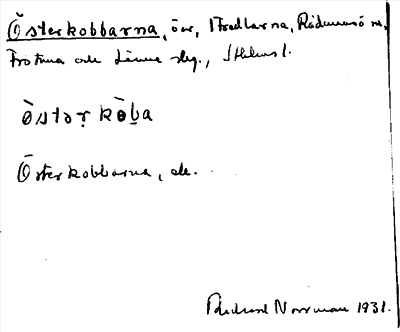 Österkobbarna, öar, Stredlarna, Rådmansö sn,
Frötuna och Länna skg., Sthlms l.
ò̈stəṛ kò̀ḇa
Österkobbarna, ek.
Rickard Norrman 1931.